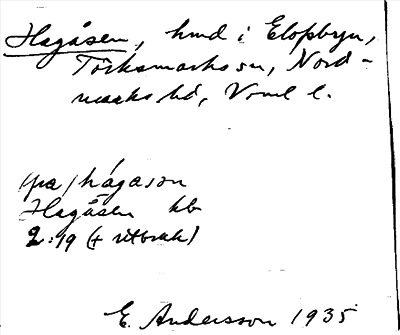 Hagåsen, hmd i Elofsbyn,
Töcksmarks sn, Nord-
marks hd, Vrml l.
(pa) hågåson
Hagåsen kb
2:19 (+ utbruk)
E. Andersson 1935